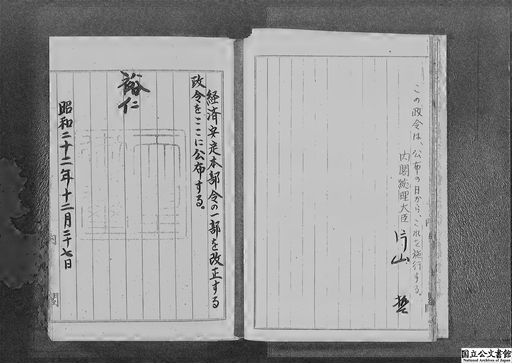 この政令は、公布の日から、これを施行する。
内閣総理大臣 片山 哲
経済安定本部令の一部を改正する
政令をここに公布する。
裕仁
昭和二十二年十二月二十七日
内閣
国立公文書館
National Archives of Japan